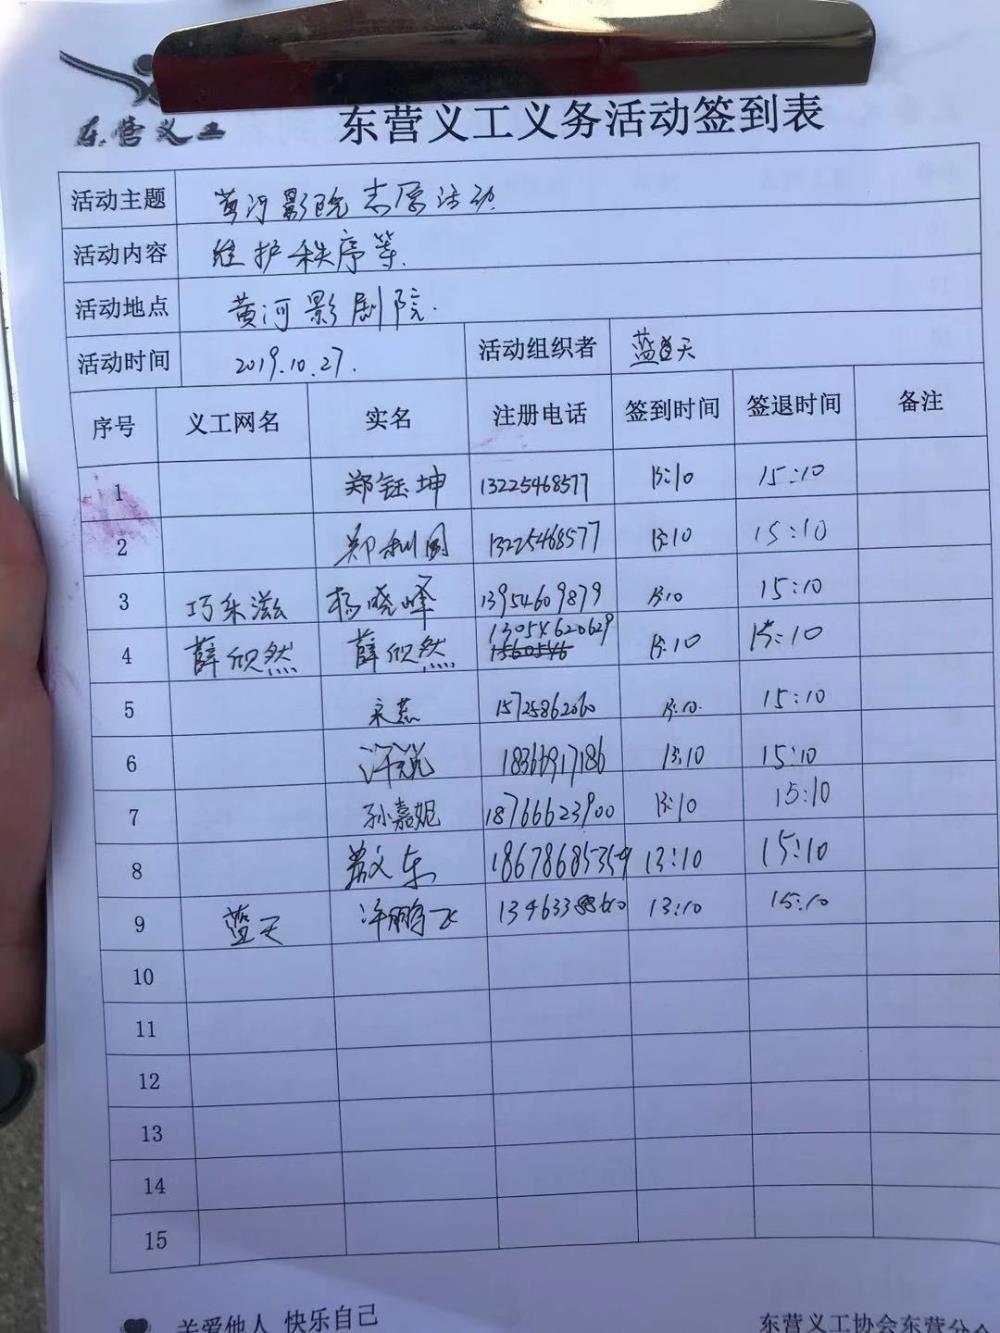 东营义工
东营义工义务活动签到表
活动主题 黄河影院志愿活动
活动内容 维护秩序等.
活动地点 黄河影剧院.
活动时间 2019.10.27. 活动组织者 蓝天
序号 义工网名 实名 注册电话 签到时间 签退时间 备注
1 郑钰坤 13225468577 13:10 15:10
2 郑利国 13225468577 13:10 15:10
3 巧乐滋 杨晓峰 13954609879 13:10 15:10
4 薛欣然 薛欣然 13054620629 13:10 15:10
5 宋燕 15725862060 13:10. 15:10
6 18366917186 13:10 15:10
7 孙嘉妮 18766623900 13:10 15:10
8 18678685359 13:10 15:10
9 蓝天 许鹏飞 13:10 15:10
10
11
12
13
14
15
关爱他人 快乐自己
东营义工协会东营分会